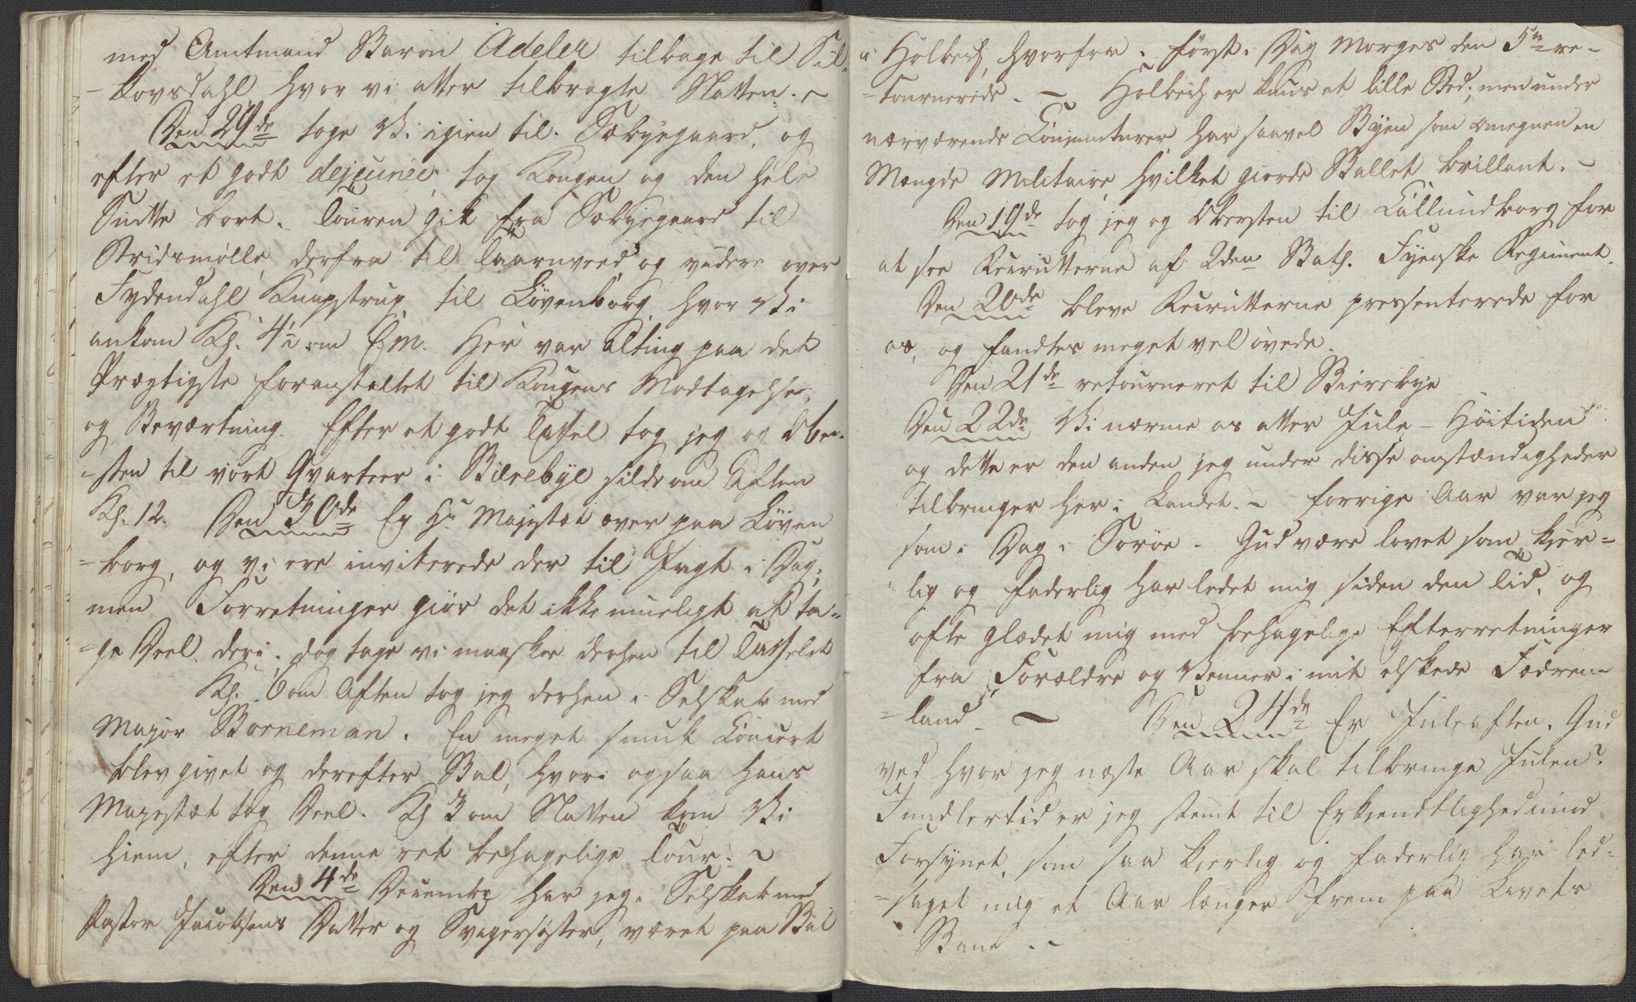 med Amtmand Baron Adeler tilbage til Sel-
-kovsdahl hvor vi atter tilbragte Natten. -
Den 29de toge Vi igien til Sæbyegaard, og
efter et godt dejeunér, tog Kongen og den hele
Suitte bort. Touren gik fra Sæbyegaard til
Stridsmølle, derfra til Taarnved og videre over
Tydendahl Knapstrup til Løvenborg, hvor Vi
ankom Kl. 4½ om Em. Her var alting paa det
Prægtigste foranstaltet til Kongens Modtagelse,
og Beværtning. Efter et godt Taffel tog jeg og Ober-
-sten til vort Qvarteer i Bierebye silde om Aften
Kl. 12. Den 30de Er Hs Majestæt over paa Løven
-borg, og vi ere inviterede der til Jagt i Dag,
men Forretninger giør det ikke mueligt at ta-
-ge Deel deri. dog tage vi maaskee derhen til Taffelet
Kl. 6 om Aften tog jeg derhen i Selskab med
Major Borneman. En meget smuk Concert
blev givet og derefter Bal, hvori ogsaa Hans
Majestæt tog Deel. Kl 3 om Natten kom Vi
hiem, efter denne ret behagelige Tour. ~
Den 4de Decembr har jeg i Selskab med
Pastor Jacobsens Datter og Svigersøster, været paa Bal
i Holbech, hvorfra i først i Dag Morges den 5te re-
-tournerede. - Holbech er kuns et lille Sted; men under
nærværende Conjuncturer har saavel Byen som omegnen en
Mængde Militaire hvilket giorde Ballet brillant. -
Den 19de tog jeg og Obersten til Callundborg for
at see Recrutterne af 2den Bath. Fyenske Regiment.
Den 20de bleve Recrutterne pressenterede for
os, og fandtes meget vel øvede.
Den 21de retourneret til Bierebye
Den 22de Vi nærme os atter Jule-Høitiden
og dette er den anden jeg under disse omstændigheder
tilbringer her i Landet. - forrige Aar var jeg
som i Dag i Sorøe. Gud være lovet som kjer-
lig og faderlig har ledet mig siden den Tid, og
ofte glædet mig med behagelige Efterretninger
fra Forældre og Venner i mit elskede Fædrene
-land. - Den 24de Er Juleaften. Gud
ved hvor jeg næste Aar skal tilbringe Julen?
Imidlertid er jeg stemt til Erkjendtlighed imod
Forsynet, som saa kjerlig og faderlig har led-
-saget mig et Aar længer frem paa Livets
Bane. -